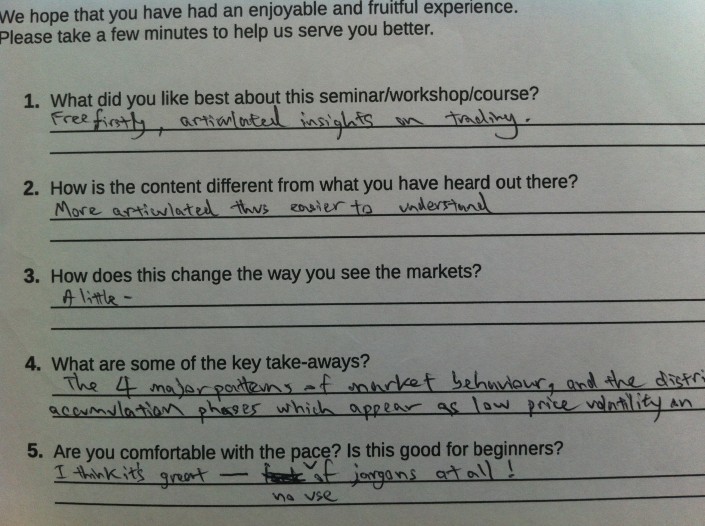 We hope that you have had an enjoyable and fruitful experience.
Please take a few minutes to help us serve you better.
1. What did you like best about this seminar/workshop/course?
Free firstly, articulated insights on trading.
2. How is the content different from what you have heard out there?
More articulated thus easier to understand
3. How does this change the way you see the markets?
A little -
4. What are some of the key take-aways?
The 4 major patterns of market behaviour, and the distri
accumulation phases which appear as low price volatility an
5. Are you comfortable with the pace? Is this good for beginners?
I think it's great — of jargons at all !
no use